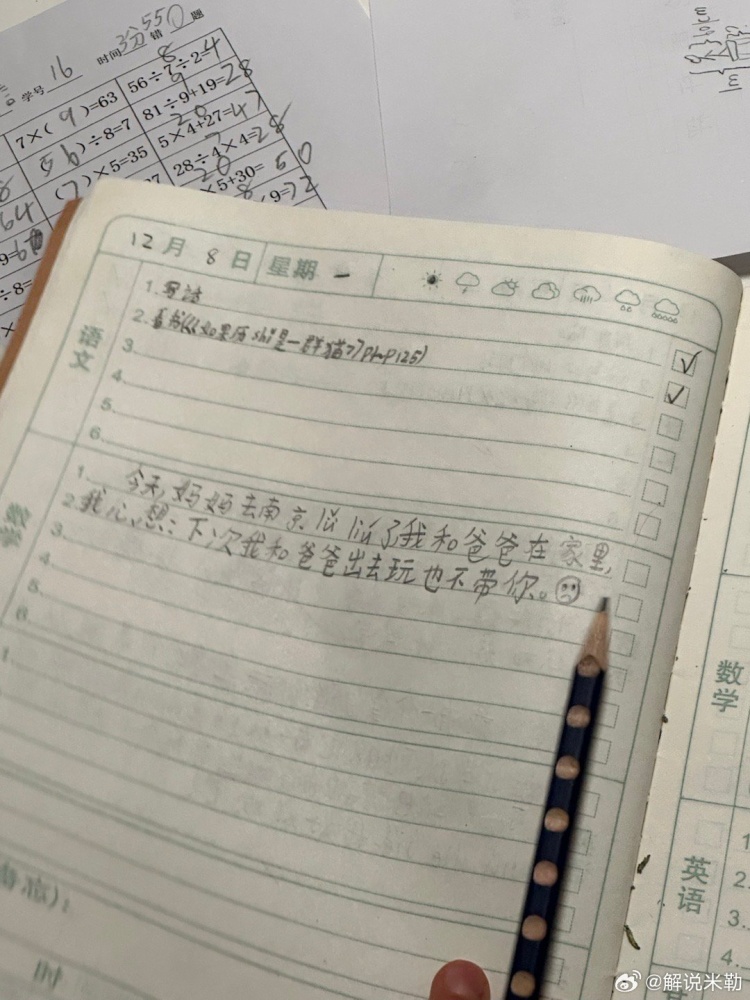 学号 16 时间 3分55 错 0 题
7×( 9 )=63 56÷7÷2=4
( 56 )÷8=7 81÷9+19=28
( 7 )×5=35 5×4+27=47
28÷4×4=28
×5+30=
12月 8日 星期一
语文
1. 写话
2. 看书(《如果历shi是一群猫7》p1~p125)
3.
4.
5.
6.
数学
1. 今天,妈妈去南京liú liú了我和爸爸在家里,
2. 我心想:下次我和爸爸出去玩也不带你。
3.
4.
5.
6.
1.
数学
英语
1
2.
3.
4.
时
@解说米勒